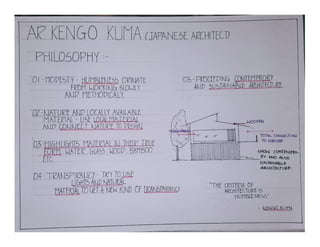 AR. KENGO KUMA (JAPANESE ARCHITECT)
PHILOSOPHY :-
01 - MODESTY - HUMBLENESS ORIGINATE
FROM WORKING SLOWLY
AND METHODICALLY
02 - NATURE AND LOCALLY AVAILABLE
MATERIAL - USE LOCAL MATERIAL
AND CONNECT NATURE TO DESIGN
03 - HIGHLIGHTS MATERIAL IN THEIR TRUE
FORM. WATER, GLASS, WOOD, BAMBOO
ETC.
04 - TRANSPARANCY - TRY TO USE
LIGHTS AND NATURAL
MATERIAL TO GET A NEW KIND OF TRANSPARANCY
05 - PRECEEDING CONTEMPRORY
AND SUSTAINABLE ARCHITECTURE.
WOODEN
TOTAL CONNECTION
TO NATURE
CONTEMPRORY
AND ALSO
SUSTAINABLE
ARCHITECTURE.
"THE CRITERIA OF
ARCHITECTURE IS
HUMBLENESS"
- KENGO KUMA